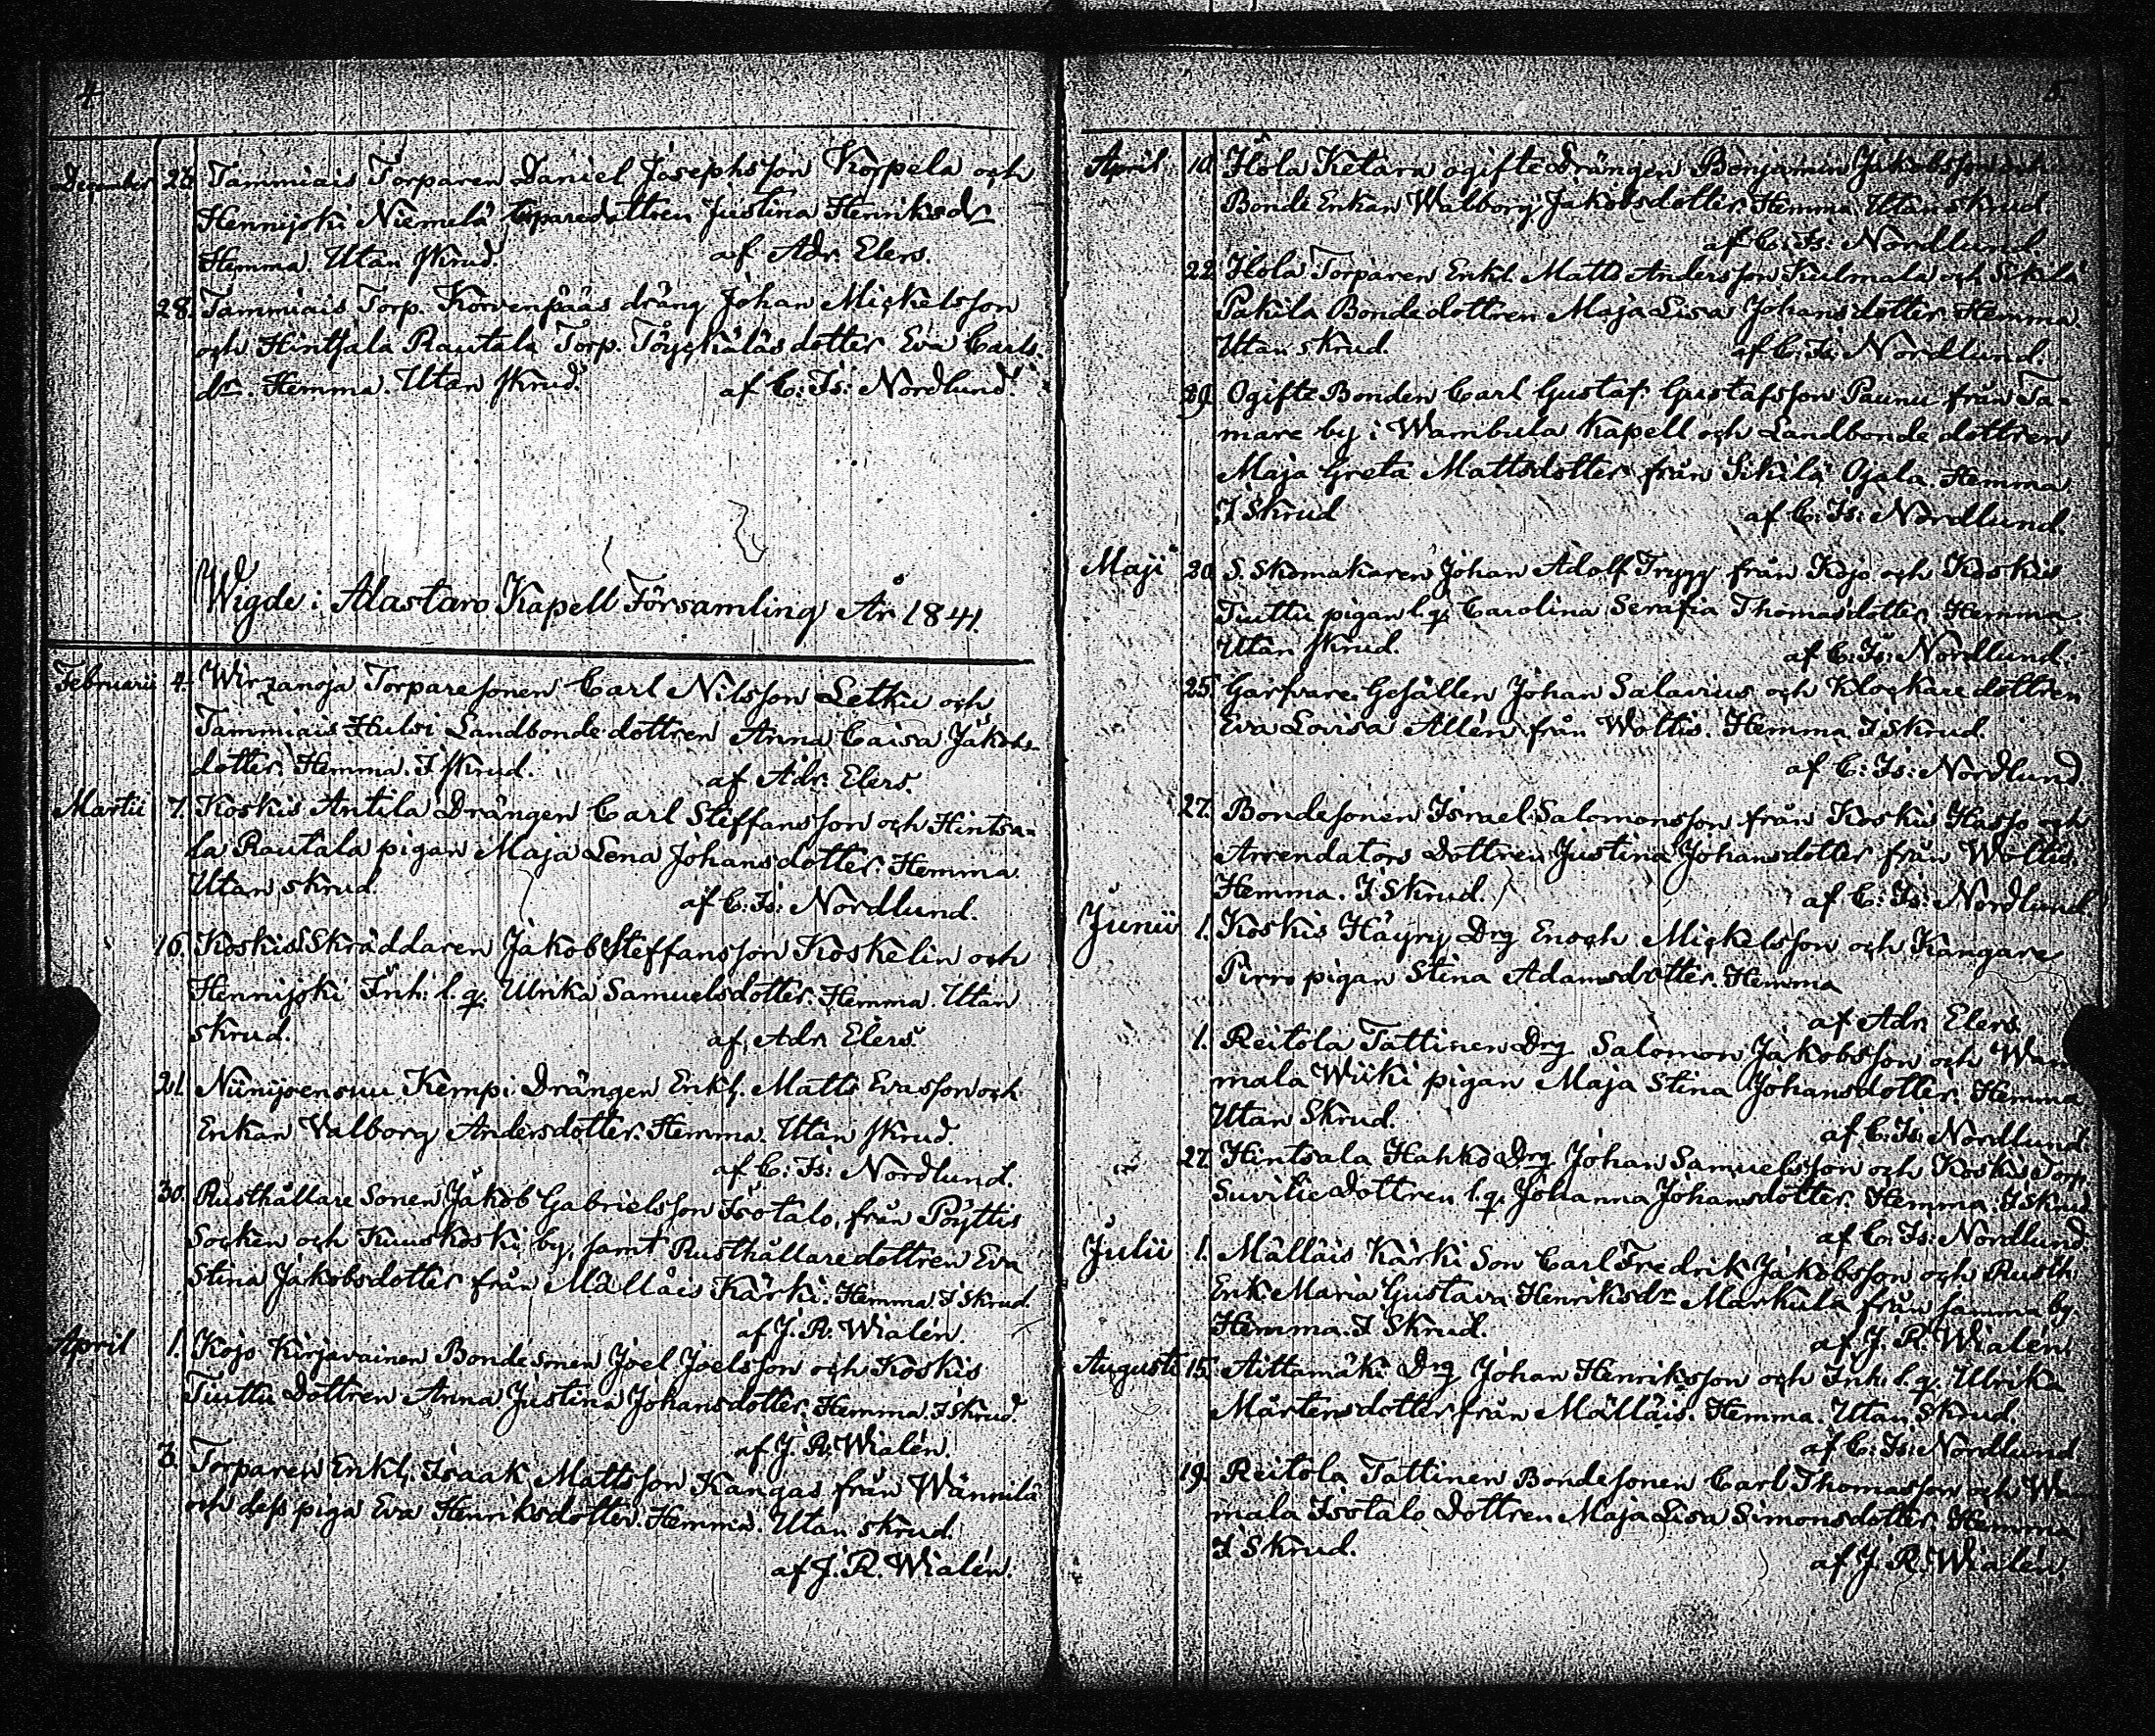 4
December 26. Tammiais Torparen Daniel Josephsson Korpela och
Hennijoki Niemelä torparedottren Justina Henriksdr
Hemma. Utan skrud. af Adr. Elers.
28. Tammiais Torp. Korvenpääs dräng Johan Mickelsson
och Hintsala Rautala Torp. Töyckäläs dotter Eva Carls-
dr. Hemma. Utan skrud. af C: Is: Nordlund.
Wigde i Alastaro Kapell Församling År 1841.
Februarii 4. Wirzanoja Torparesonen Carl Nilsson Letku och
Tammiais Huldi Landbonde dottren Anna Caisa Jakobs-
dotter. Hemma. I skrud. af Adr. Elers.
Martii 7. Koskis Antila Drängen Carl Steffansson och Hintsa-
la Rautala pigan Maja Lena Johansdotter. Hemma.
Utan skrud. af C: Is: Nordlund.
16. Koskis Skräddaren Jakob Steffansson Koskelin och
Hennijoki Inh. l. q. Ulrika Samuelsdotter. Hemma. Utan
skrud. af Adr. Elers.
21. Niinijoensuu Kempi Drängen Enkl. Matts Evasson och
Enkan Valborg Andersdotter. Hemma. Utan skrud.
af C: Is: Nordlund.
30. Rusthållare Sonen Jakob Gabrielsson Isotalo, från Pöyttis
Socken och Kuuskoski by, samt Rusthållaredottren Eva
Stina Jakobsdotter från Mälläis Kärki. Hemma. I skrud.
af J. R. Wialén.
April 1. Kojo Kirjavainen Bondesonen Joel Joelsson och Koskis
Tuittu Dottren Anna Justina Johansdotter. Hemma. I skrud.
af J. R. Wialén.
3. Torparen Enkl. Isaak Mattsson Kangas från Wännilä
och dess piga Eva Henriksdotter. Hemma. Utan skrud.
af J. R. Wialén.
5
April 10. Hola Ketara ogifte Drängen Benjamin Jakobsson och
Bonde Enkan Walborg Jakobsdotter. Hemma. Utan skrud.
af C: Is: Nordlund
22. Hola Torparen Enkl. Matts Andersson Kulmala och Sikilä
Pakila Bondedottren Maja Lisa Johansdotter. Hemma.
Utan skrud. af C: Is: Nordlund.
29. Ogifte Bonden Carl Gustaf Gustafsson Paunu från Ta-
mare by i Wambula Kapell och Landbonde dottren
Maja Greta Mattsdotter från Sikilä Ojala. Hemma.
I skrud af C: Is: Nordlund.
Maji 20. S. Skomakaren Johan Adolf Trygg från Kojo och Koskis
Tuittu pigan l. q. Carolina Serafia Thomasdotter. Hemma.
Utan skrud. af C: Is: Nordlund.
25. Garfvare Gesällen Johan Salavius och Klockare dottren
Eva Lovisa Allén från Woltis. Hemma. I skrud.
af C: Is: Nordlund.
27. Bondesonen Israel Salomonsson från Koskis Hasso och
Arrendators Dottren Justina Johansdotter från Woltis.
Hemma. I skrud. af C: Is: Nordlund.
Junii 1. Koskis Häyry Drg Enoch Mickelsson och Kangare
Pirro pigan Stina Adamsdotter. Hemma
af Adr. Elers.
1. Reitola Tattinen Drg Salomon Jakobsson och Wam
mala Wiiki pigan Maja Stina Johansdotter. Hemma
Utan Skrud. af C: Is: Nordlund.
27. Hintsala Hahko Drg Johan Samuelsson och Koskis Torp.
Suvitie Dottren l. q. Johanna Johansdotter. Hemma. I skrud.
af C: Is: Nordlund.
Julii 1. Mälläis Kärki Son Carl Fredrik Jakobsson och Rusth.
Enk. Maria Gustava Henriksdr Markula från samma by.
Hemma. I Skrud. af J. R. Wialén.
Augusti 15. Aittamäki Drg Johan Henriksson och Inh. l. q. Ulrika
Mårtensdotter från Mälläis. Hemma. Utan skrud.
af C: Is: Nordlund
19. Reitola Tattinen Bondesonen Carl Thomasson och Wa
mala Isotalo Dottren Maja Lisa Simonsdotter. Hemma
I Skrud. af J. R. Wialén.